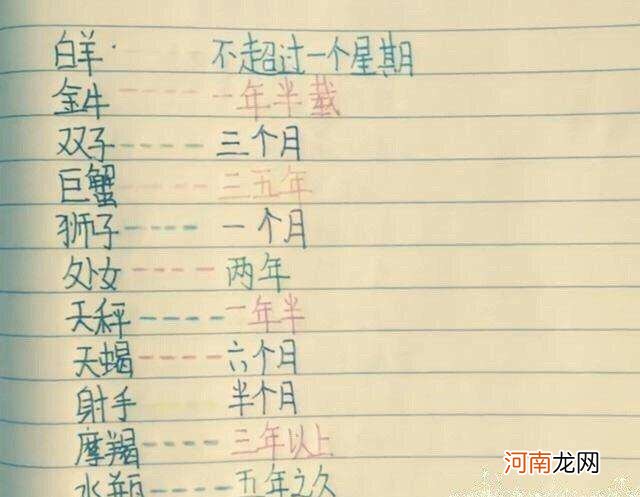 白羊· 不超过一个星期
金牛----一年半载
双子----三个月
巨蟹----三五年
狮子----一个月
处女----两年
天秤----一年半
天蝎----六个月
射手----半个月
摩羯----三年以上
水瓶----五年之久
河南龙网